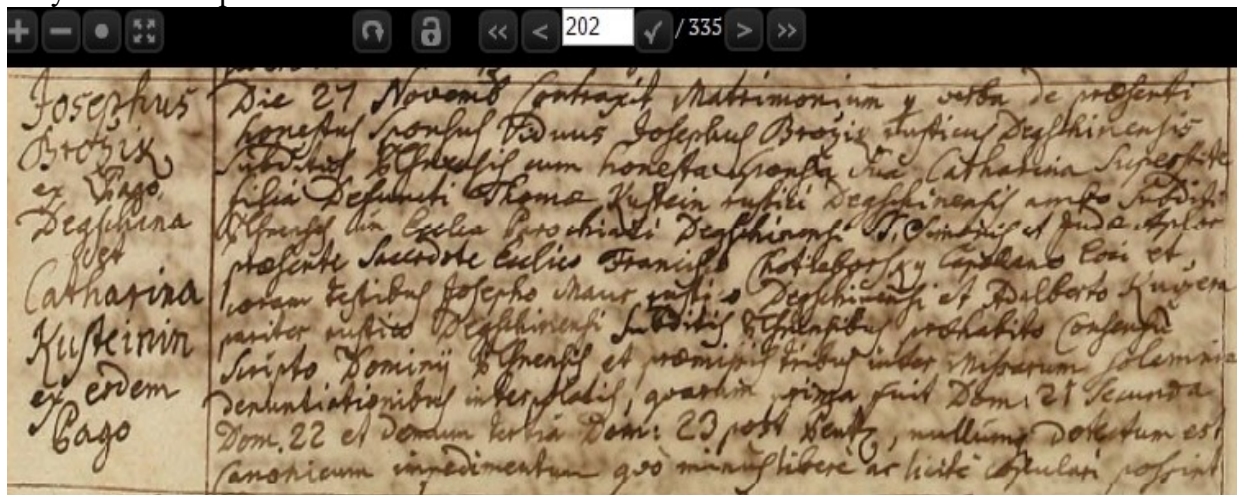 202 / 335
Josephus
Brožik
ex Pago
Degschina
est
Catharina
Kusteinin
ex eodem
Pago
Die 27 Novemb Contraxit Matrimonium verba de præsenti
honestus Sponsus Viduus Josephus Brožik rusticus Degschinensis
Subditus cum honesta sponsa Sua Catharina Superstite
filia Defuncti Thomæ Kustein rustici Degschinensis ambo Subditi
in Ecclia Parochiali Degschinensi S. Simonis et Judæ
præsente Sacerdote Francisco Chotieborsky Capelano loci et
coram testibus Josepho Maur rustico Degschinensi et Adalberto Kuvera
pariter rustico Degschinensi Subditis præhabito Consensu
Scripto Dominij et præmissis tribus inter Missarum Solemnia
denuntiationibus interpolatis, quarum prima fuit Dom: 21 Secunda
Dom. 22 et demum tertia Dom: 23 post Pent, nullumq detectum est
Canonicum impedimentum quo minus libere ac licite copulari possint